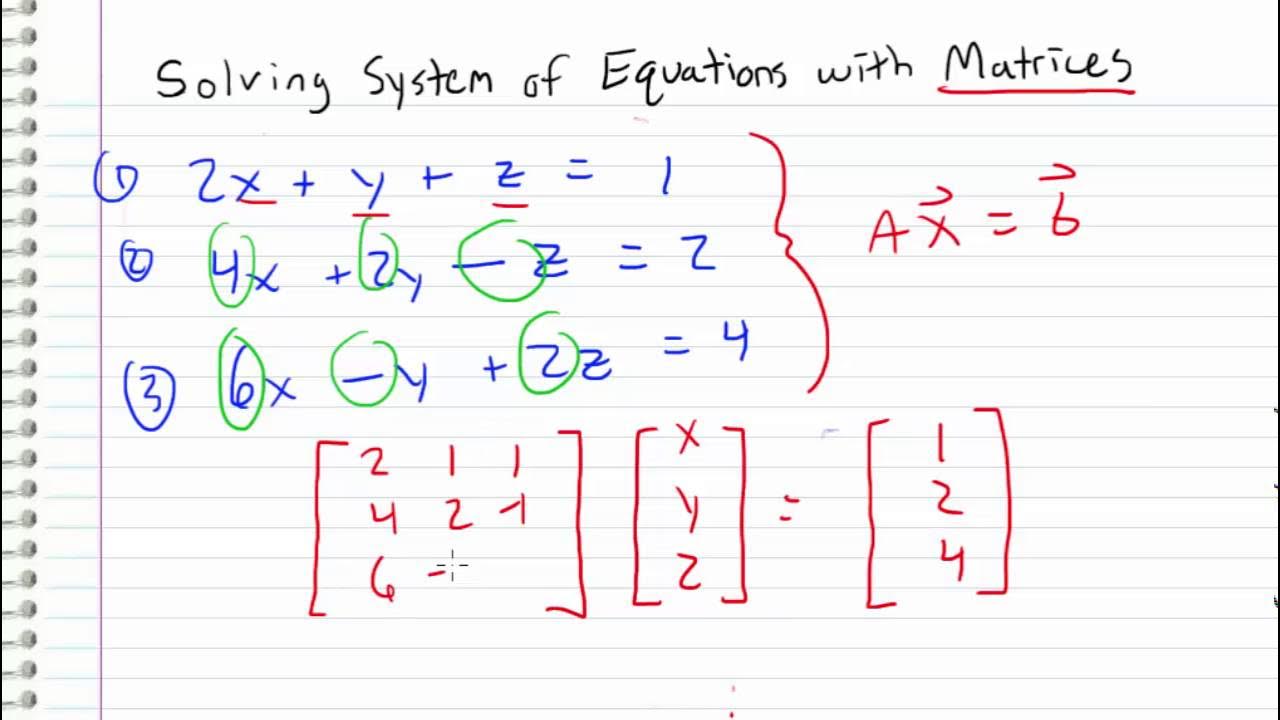 Solving System of Equations with Matrices
① 2x + y + z = 1
② 4x + 2y - z = 2
③ 6x - y + 2z = 4
A x⃗ = b⃗
2 1 1 x 1
4 2 -1 y = 2
6 - z 4